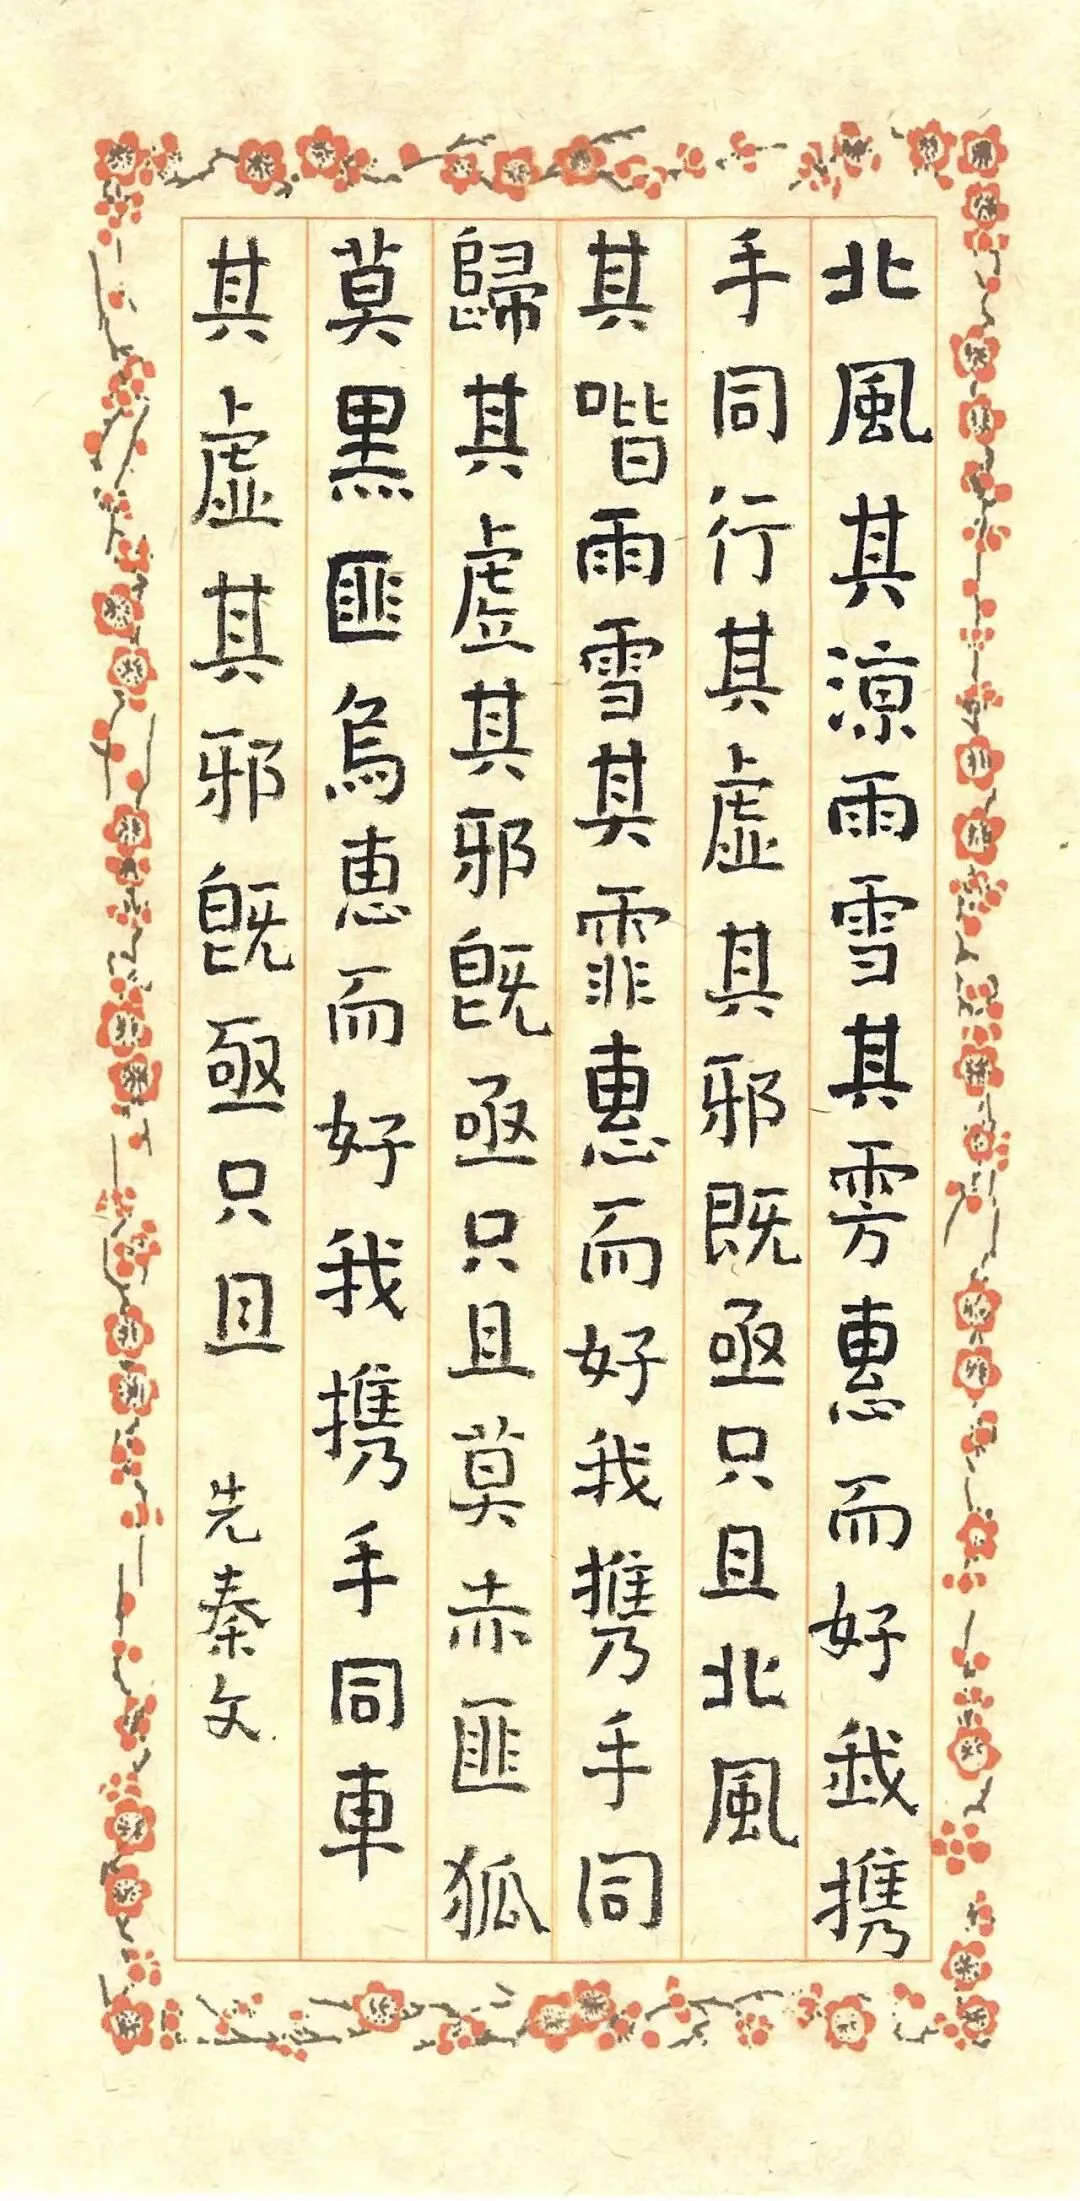 北風其涼雨雪其雱惠而好我攜
手同行其虛其邪既亟只且北風
其喈雨雪其霏惠而好我攜手同
歸其虛其邪既亟只且莫赤匪狐
莫黑匪烏惠而好我攜手同車
其虛其邪既亟只且 先秦文